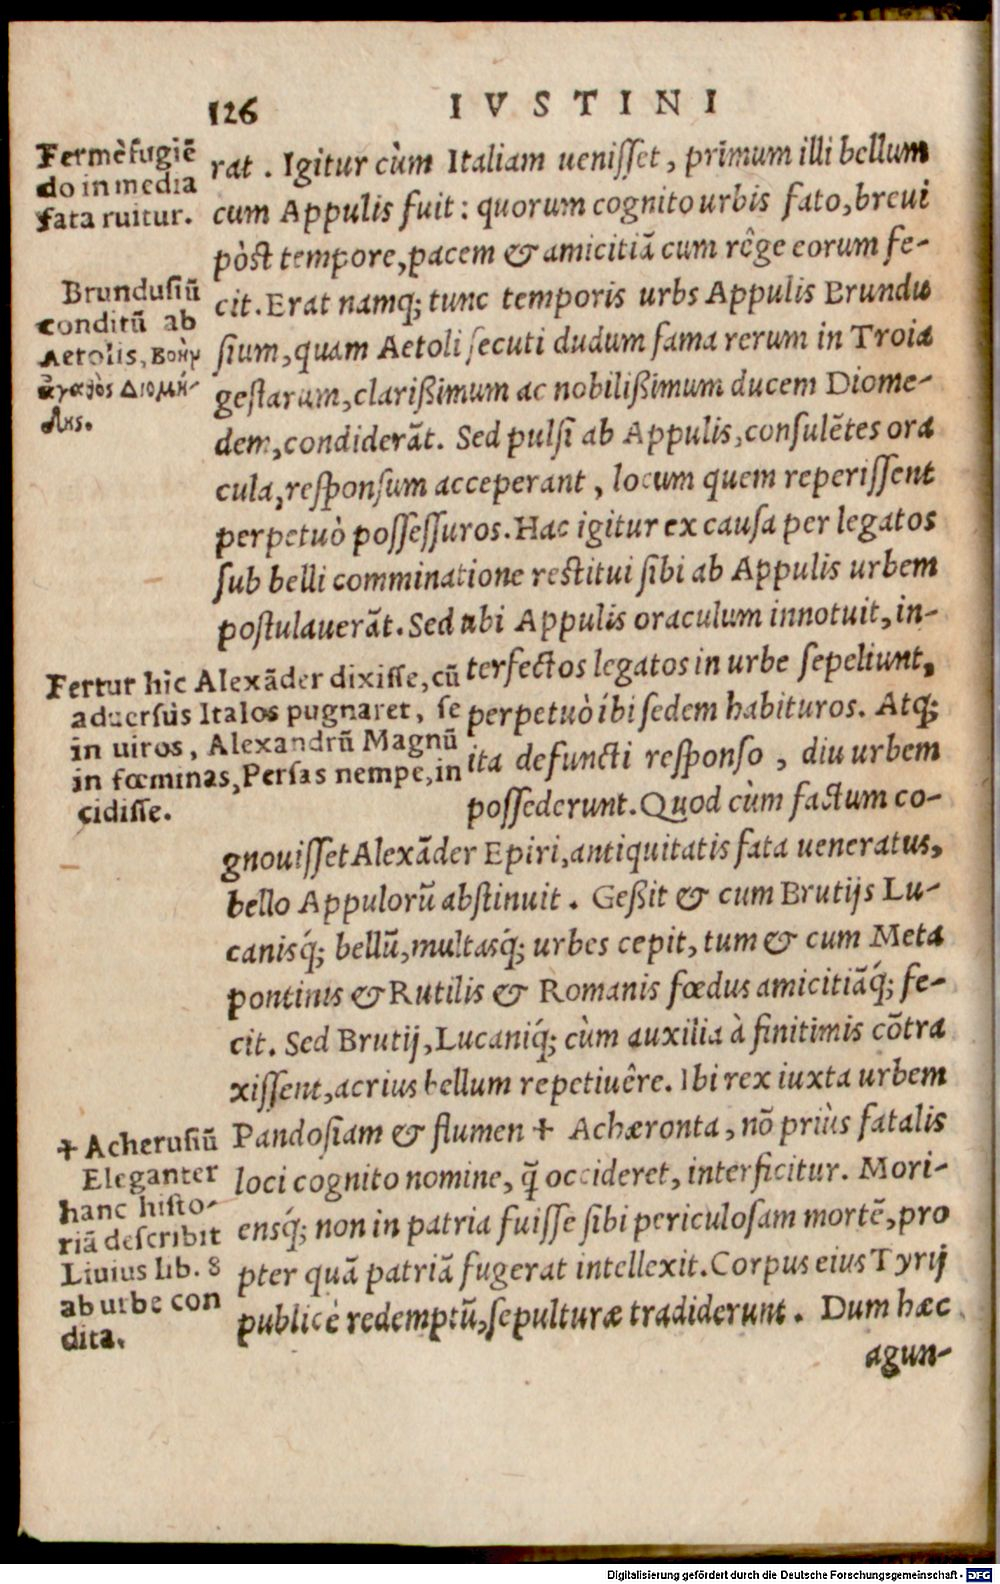 126 IVSTINI
Fermè fugiē
do in media
fata ruitur.
Brundusiũ
conditũ ab
Aetolis, βοὴν
ἀγαθὸς Διομή-
δης.
rat. Igitur cùm Italiam uenisset, primum illi bellum
cum Appulis fuit: quorum cognito urbis fato, breui
pòst tempore, pacem & amicitiã cum rêge eorum fe-
cit. Erat namq; tunc temporis urbs Appulis Brundu
sium, quam Aetoli secuti dudum fama rerum in Troia
gestarum, clarißimum ac nobilißimum ducem Diome-
dem, condiderãt. Sed pulsi ab Appulis, consulẽtes ora
cula, responsum acceperant, locum quem reperissent
perpetuò possessuros. Hac igitur ex causa per legatos
sub belli comminatione restitui sibi ab Appulis urbem
postulauerãt. Sed ubi Appulis oraculum innotuit, in-
terfectos legatos in urbe sepeliunt,
perpetuò ibi sedem habituros. Atq;
ita defuncti responso, diu urbem
possederunt. Quod cùm factum co-
Fertur hìc Alexãder dixisse, cũ
aduersùs Italos pugnaret, se
in uiros, Alexandrũ Magnũ
in fœminas, Persas nempe, in
cidisse.
gnouisset Alexãder Epiri, antiquitatis fata ueneratus,
bello Appulorũ abstinuit. Geßit & cum Brutijs Lu-
canisq́; bellũ, multasq́; urbes cepit, tum & cum Meta
pontinis & Rutilis & Romanis fœdus amicitiãq́; fe-
cit. Sed Brutij, Lucaniq́; cùm auxilia à finitimis cõtra
xissent, acrius bellum repetiuêre. Ibi rex iuxta urbem
Pandosiam & flumen ✝ Achæronta, nõ priùs fatalis
loci cognito nomine, q̃ occideret, interficitur. Mori-
ensq́; non in patria fuisse sibi periculosam mortẽ, pro
pter quã patriã fugerat intellexit. Corpus eius Tyrij
publicè redemptũ, sepulturæ tradiderunt. Dum hæc
✝ Acherusiũ
Eleganter
hanc histo-
riã describit
Liuius lib. 8
ab urbe con
dita.
agun-
Digitalisierung gefördert durch die Deutsche Forschungsgemeinschaft - DFG